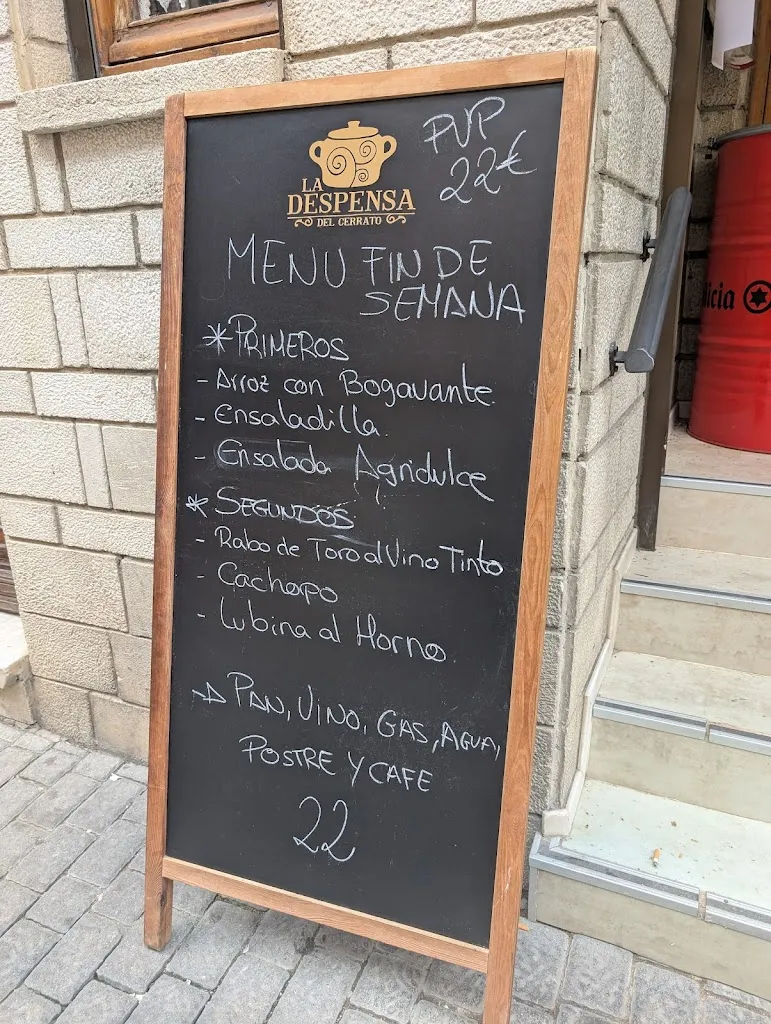 PVP
22€
LA
DESPENSA
DEL CERRATO
MENU FIN DE
SEMANA
*PRIMEROS
- Arroz con Bogavante.
- Ensaladilla.
- Ensalada Agridulce
* SEGUNDOS
- Rabo de Toro al Vino Tinto
- Cachopo
- Lubina al Horno.
→ PAN, VINO, GAS, AGUA,
POSTRE Y CAFE
22